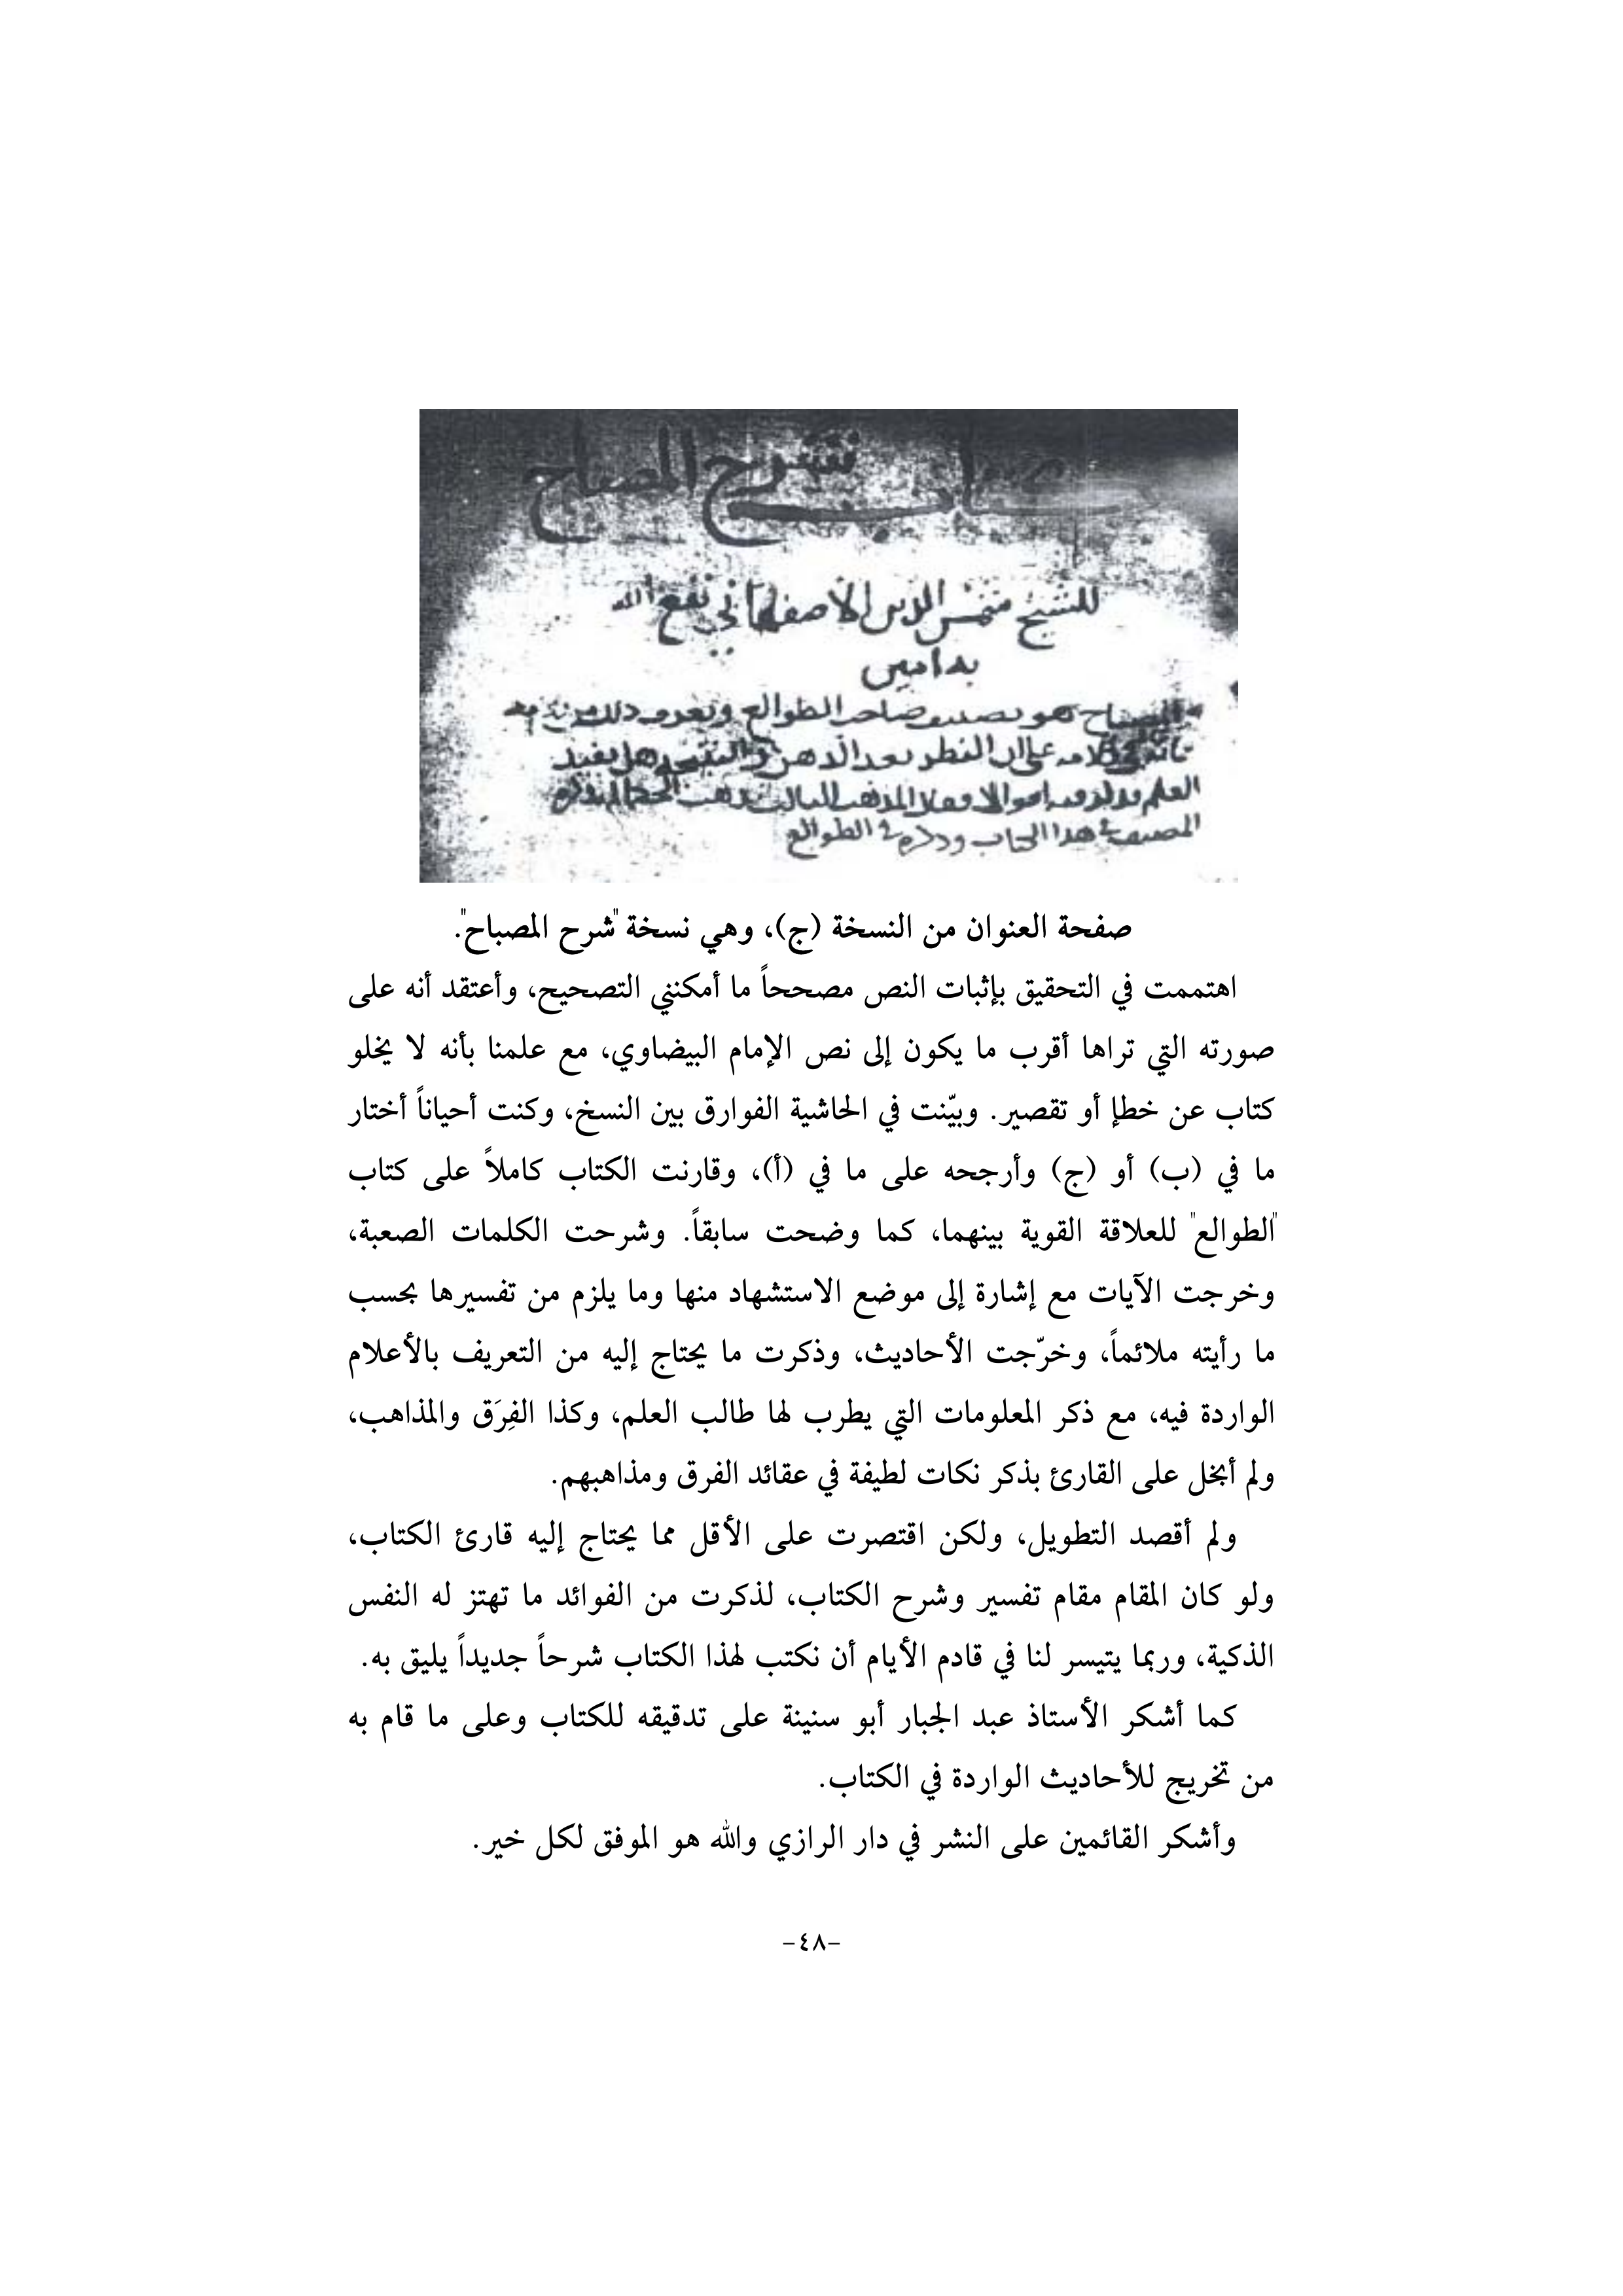 كتاب شرح المصباح
للشيخ شمس الدين الاصفهاني نفع الله
به امين
المصباح هو تصنيف صاحب الطوالع ويعرف ذلك من
كلامه على ان النظر يعد الذهن والنتيجة هل يفيد
العلم
المصنف في هذا الكتاب وذكره في الطوالع
صفحة العنوان من النسخة (ج)، وهي نسخة "شرح المصباح".
اهتممت في التحقيق بإثبات النص مصححاً ما أمكنني التصحيح، وأعتقد أنه على
صورته التي تراها أقرب ما يكون إلى نص الإمام البيضاوي، مع علمنا بأنه لا يخلو
كتاب عن خطإ أو تقصير. وبيّنت في الحاشية الفوارق بين النسخ، وكنت أحياناً أختار
ما في (ب) أو (ج) وأرجحه على ما في (أ)، وقارنت الكتاب كاملاً على كتاب
"الطوالع" للعلاقة القوية بينهما، كما وضحت سابقاً. وشرحت الكلمات الصعبة،
وخرجت الآيات مع إشارة إلى موضع الاستشهاد منها وما يلزم من تفسيرها بحسب
ما رأيته ملائماً، وخرّجت الأحاديث، وذكرت ما يحتاج إليه من التعريف بالأعلام
الواردة فيه، مع ذكر المعلومات التي يطرب لها طالب العلم، وكذا الفِرَق والمذاهب،
ولم أبخل على القارئ بذكر نكات لطيفة في عقائد الفرق ومذاهبهم.
ولم أقصد التطويل، ولكن اقتصرت على الأقل مما يحتاج إليه قارئ الكتاب،
ولو كان المقام مقام تفسير وشرح الكتاب، لذكرت من الفوائد ما تهتز له النفس
الذكية، وربما يتيسر لنا في قادم الأيام أن نكتب لهذا الكتاب شرحاً جديداً يليق به.
كما أشكر الأستاذ عبد الجبار أبو سنينة على تدقيقه للكتاب وعلى ما قام به
من تخريج للأحاديث الواردة في الكتاب.
وأشكر القائمين على النشر في دار الرازي والله هو الموفق لكل خير.
-٤٨-